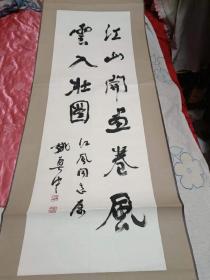 江山開畫卷風
雲入壯圖
江風同志屬
姚奠中